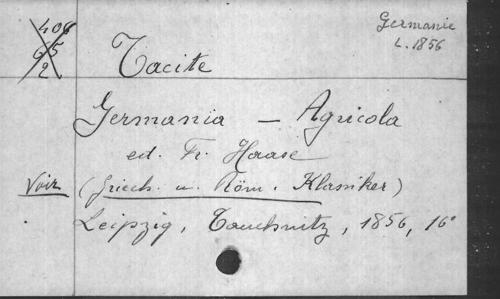 406
65
2
Germanie
L. 1856
Tacite
Germania — Agricola
ed. Fr. Haase
Voir (Griech. u. Röm. Klassiker)
Leipzig, Tauchnitz, 1856, 16°